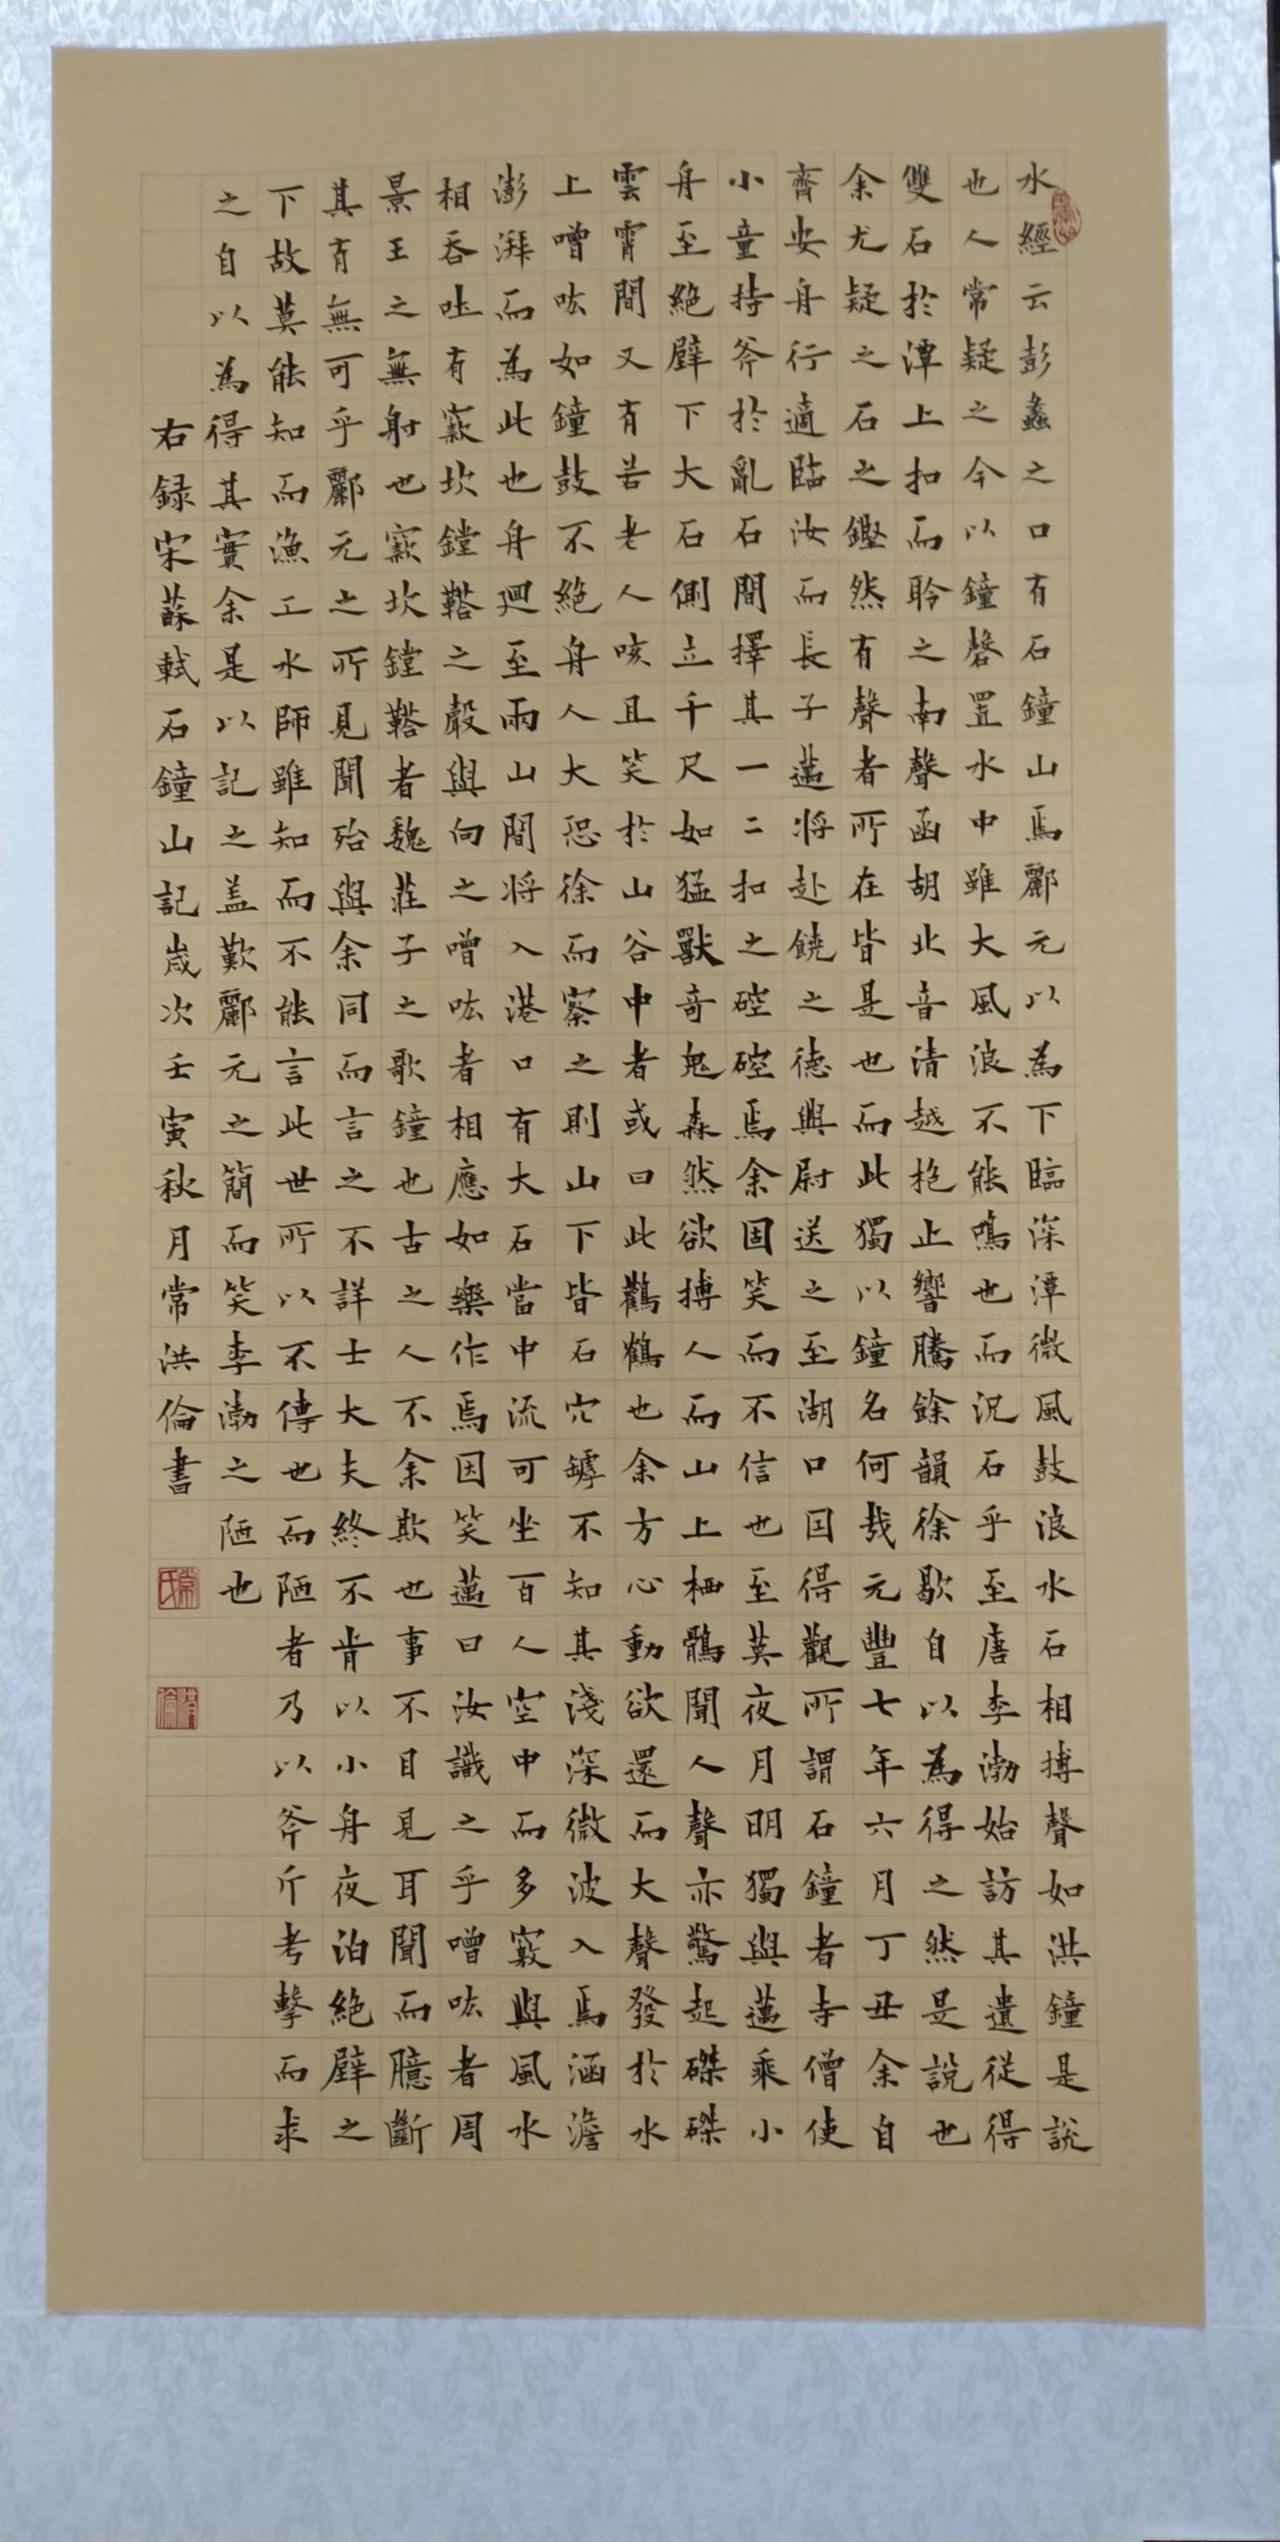 水經云彭蠡之口有石鐘山焉酈元以為下臨深潭微風鼓浪水石相搏聲如洪鐘是說
也人常疑之今以鐘磬置水中雖大風浪不能鳴也而況石乎至唐李渤始訪其遺從得
雙石於潭上扣而聆之南聲函胡北音清越枹止響騰餘韻徐歇自以為得之然是說也
余尤疑之石之鏗然有聲者所在皆是也而此獨以鐘名何哉元豐七年六月丁丑余自
齊安舟行適臨汝而長子邁將赴饒之德興尉送之至湖口因得觀所謂石鐘者寺僧使
小童持斧於亂石間擇其一二扣之硿硿焉余固笑而不信也至莫夜月明獨與邁乘小
舟至絕壁下大石側立千尺如猛獸奇鬼森然欲搏人而山上栖鶻聞人聲亦驚起磔磔
雲霄間又有若老人咳且笑於山谷中者或曰此鸛鶴也余方心動欲還而大聲發於水
上噌吰如鐘鼓不絕舟人大恐徐而察之則山下皆石穴罅不知其淺深微波入焉涵澹
澎湃而為此也舟迴至兩山間將入港口有大石當中流可坐百人空中而多竅與風水
相吞吐有窾坎鏜鞳之聲與向之噌吰者相應如樂作焉因笑邁曰汝識之乎噌吰者周
景王之無射也窾坎鏜鞳者魏莊子之歌鐘也古之人不余欺也事不目見耳聞而臆斷
其有無可乎酈元之所見聞殆與余同而言之不詳士大夫終不肯以小舟夜泊絕壁之
下故莫能知而漁工水師雖知而不能言此世所以不傳也而陋者乃以斧斤考擊而求
之自以為得其實余是以記之盖歎酈元之簡而笑李渤之陋也
右録宋蘇軾石鐘山記歲次壬寅秋月常洪倫書
常氏